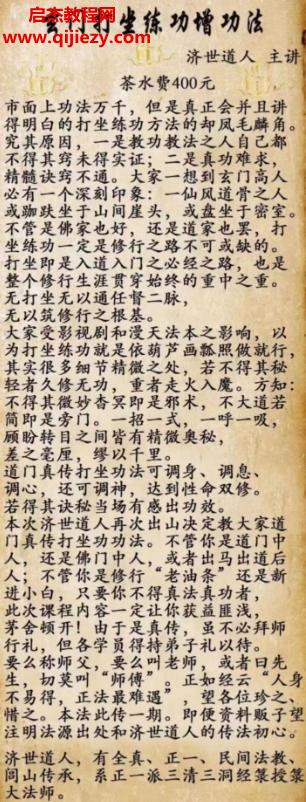 启杰教程网
www.qijiezy.com
玄门打坐练功增功法
济世道人 主讲
茶水费400元
市面上功法万千，但是真正会并且讲
得明白的打坐练功方法的却凤毛麟角。
究其原因，一是教功教法之人自己都
不得其窍未得实证；二是真功难求，
精髓诀窍不通。大家一想到玄门高人
必有一个深刻印象：一仙风道骨之人
或跏趺坐于山间崖头，或盘坐于密室。
不管是佛家也好，还是道家也罢，打
坐练功一定是修行之路不可或缺的。
打坐即是入道入门之必经之路，也是
整个修行生涯贯穿始终的重中之重。
无打坐无以通任督二脉，
无以筑修行之根基。
大家受影视剧和漫天法本之影响，以
为打坐练功就是依葫芦画瓢照做就行，
其实很多细节精微之处，若不得其秘
轻者久修无功，重者走火入魔。方知：
不得其微妙杳冥即是邪术，不大道若
简即是旁门。一招一式，一呼一吸，
顾盼转目之间皆有精微奥秘，
差之毫厘，缪以千里。
道门真传打坐功法可调身、调息、
调心，还可调神，达到性命双修。
若得其诀秘当场有感出功效。
本次济世道人再次出山决定教大家道
门真传打坐功功法。不管你是道门中
人，还是佛门中人，或者出马出道后
人；不管你是修行“老油条”还是新
进小白，只要你不得真法真功者，
此次课程内容一定让你获益匪浅，
茅舍顿开！由于是真传，虽不必拜师
行礼，但各学员得持弟子礼以待。
要么称师父，要么叫老师，或者曰先
生，切莫叫“师傅”。正如经云“人身
不易得，正法最难遇”，望各位珍之、
惜之。本法此传一期。即便资料贩子望
注明法源出处和济世道人的传法初心。
济世道人，有全真、正一、民间法教、
闾山传承，系正一派三清三洞经箓授箓
大法师。